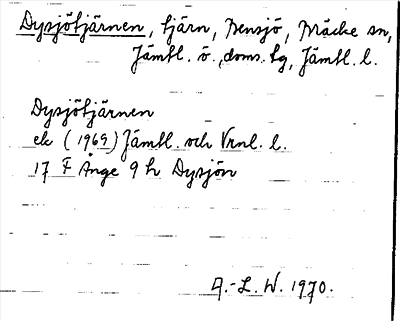 Dysjötjärnen, tjärn, Bensjö, Bräcke sn,
Jämtl. ö., doms. tg, Jämtl. l.
Dysjötjärnen
ek (1969) Jämtl. och Vrnl. l.
17 F Ånge 9 h Dysjön
A.-L. W. 1970.